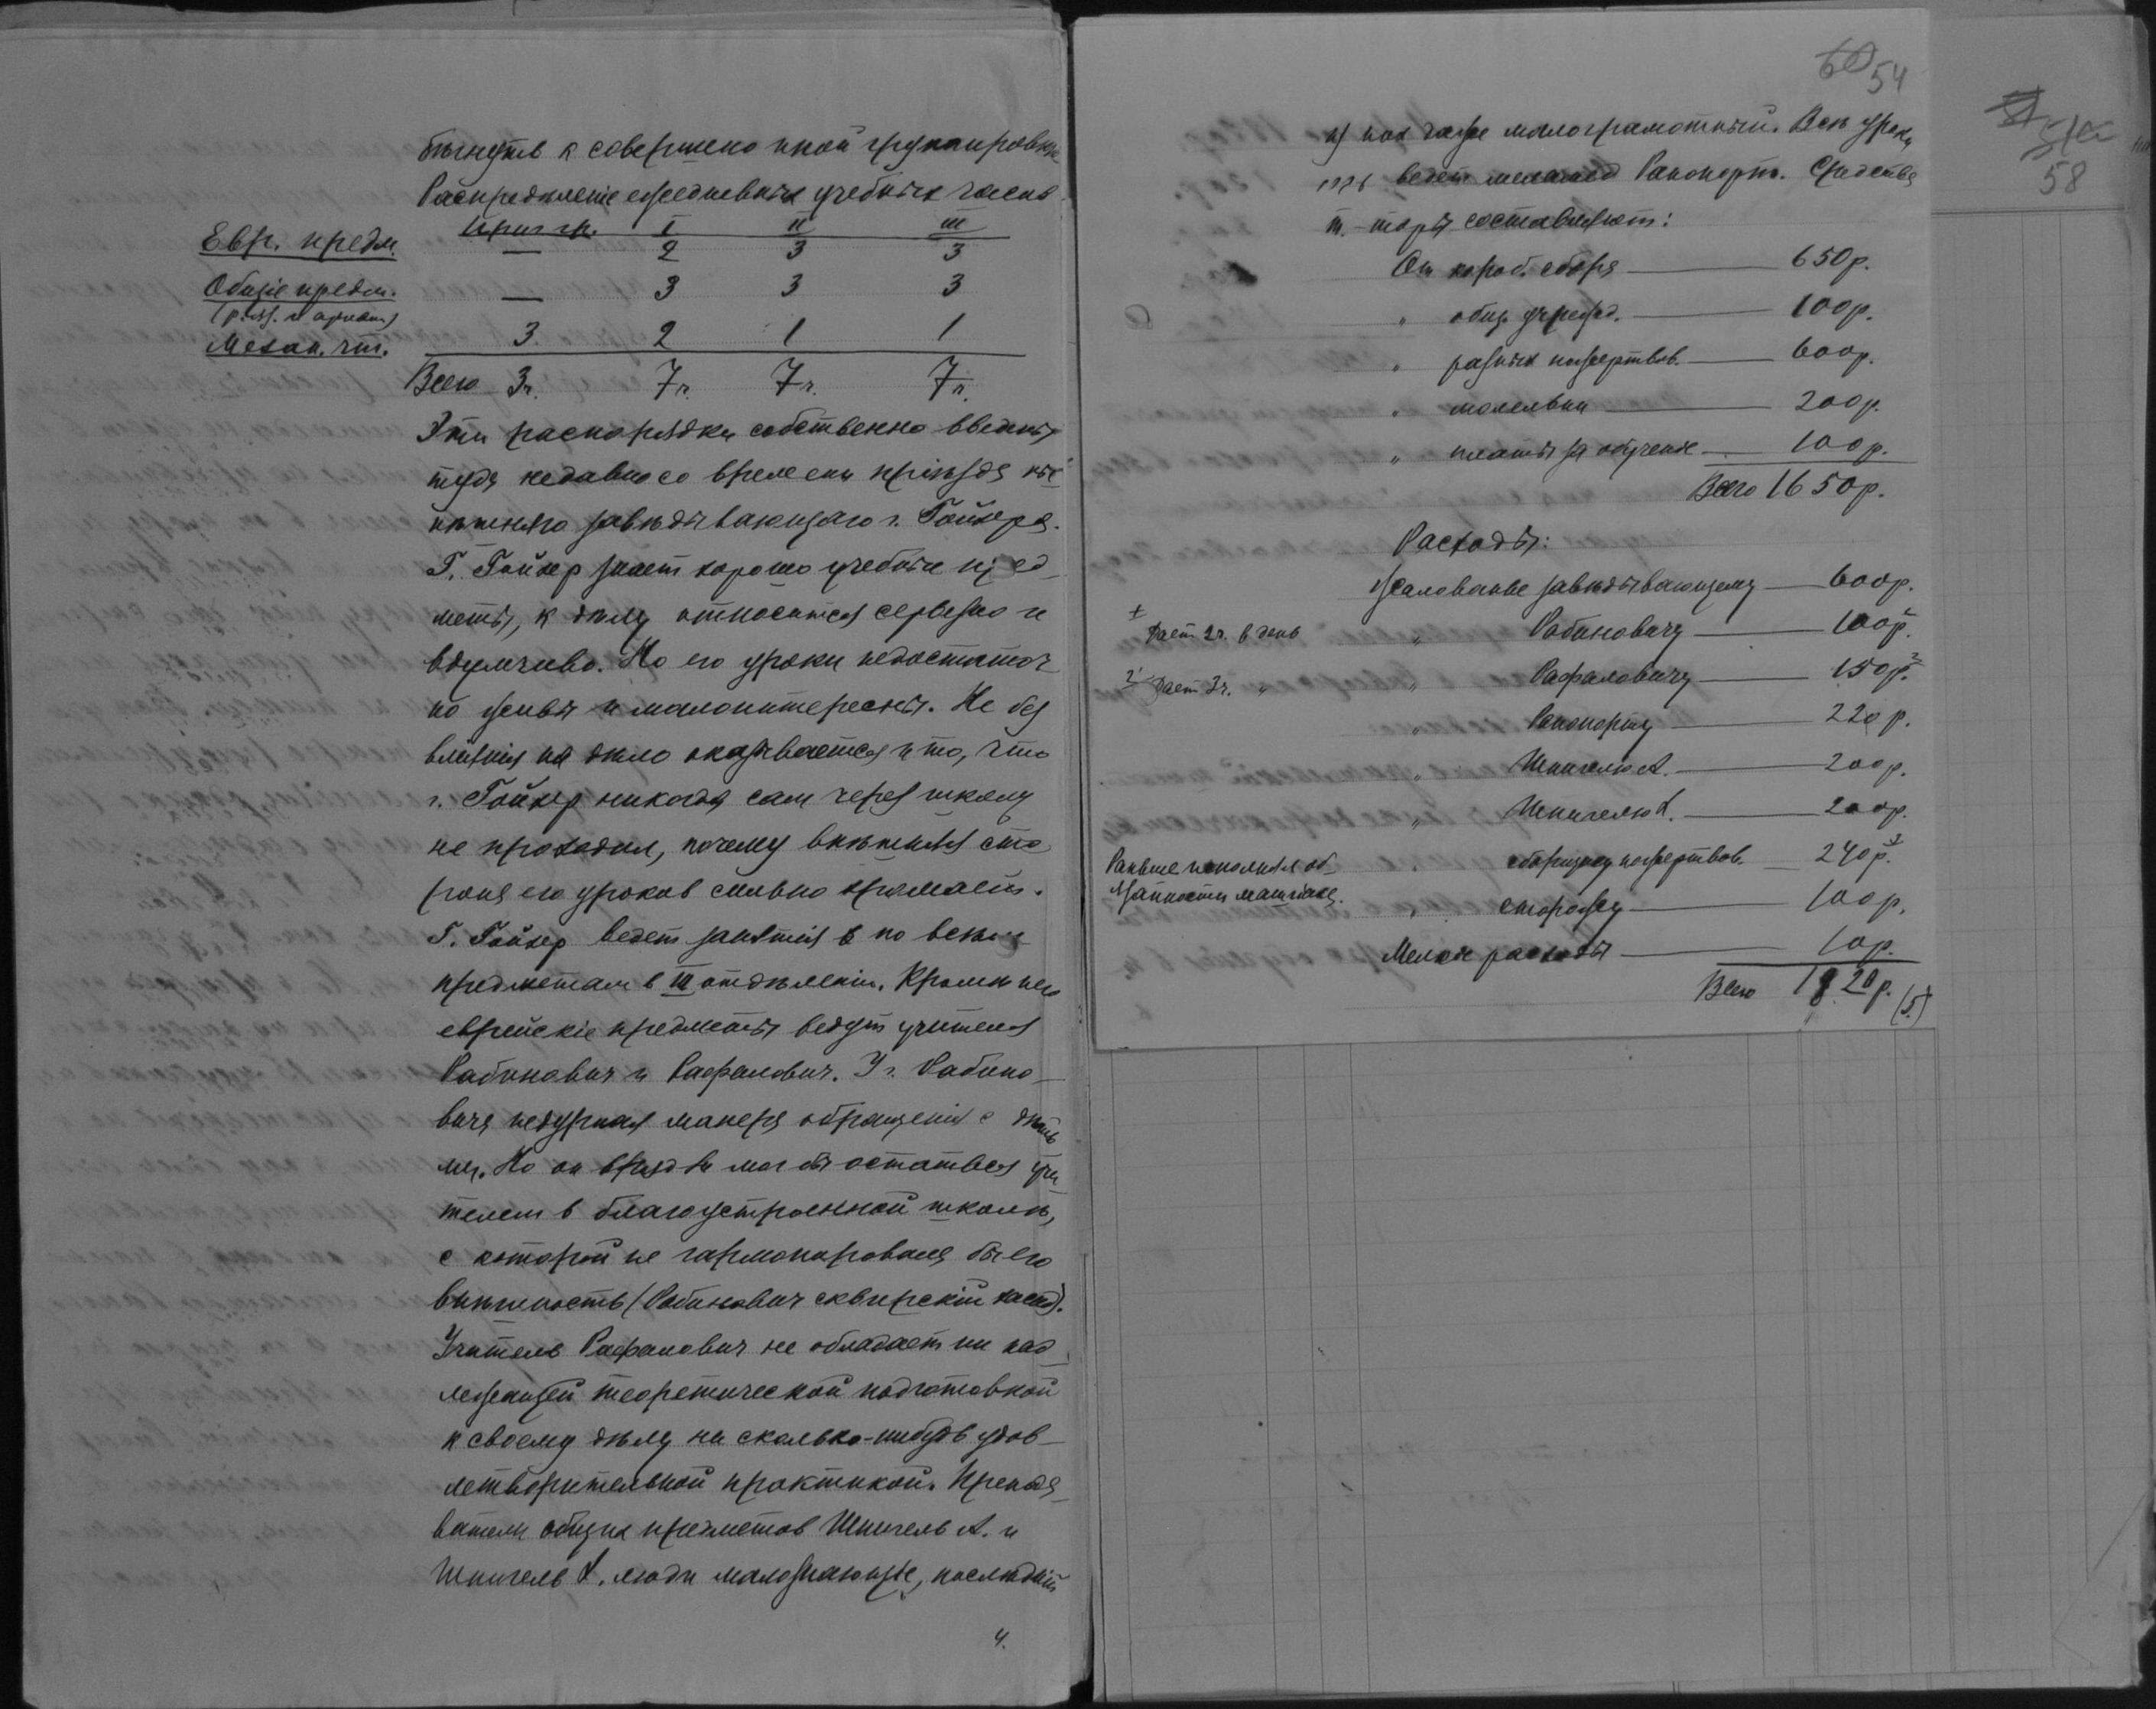 бѣгнуть к совершено иной групировкѣ
Распредѣленiе ежедневных учебных часов
Приг. гр. I II III
Евр. предм. — 2 3 3
Общiе предм. — 3 3 3
(р. яз. и арифм.)
Механ. чт. 3. 2 1 1
Всего 3 ч. 7 ч. 7 ч. 7 ч.
Эти распорядки собственно введены
туда недавно со времени прiѣзда ны
нѣшняго завѣдывающаго г. Гойхера.
Г. Гойхер знает хорошо учебные пред
меты, к дѣлу относится серьезно и
вдумчиво. Но его уроки недостаточ
но живы и малоинтересны. Не без
влiянiя на дѣло оказывается и то, что
г. Гойхер никогда сам через школу
не проходил, почему внѣшняя сто
рона его уроков сильно хромает.
Г. Гойхер ведет занятiя по всѣм
предметам в III отдѣленiи. Кромѣ него
еврейскiе предметы ведут учителя
Рабинович и Рафалович. У г. Рабино
вича недурная манера обращенiя с дѣть
ми. Но он врядъ ли мог бы остаться учи
телем в благоустроенной школѣ,
с которой не гармонировала бы его
внѣшность (Рабинович сквирскiй хасид).
Учитель Рафалович не обладает ни над
лежащей теоретической подготовкой
к своему дѣлу ни сколько-нибудь удов
летворительной практикой. Препода
ватели общих предметов Шпигель А. и
Шпигель Л. люди малознающiе, послѣднiй
4.
60 54
58
даже малограмотный. Всѣ уроки
ведет меламед Рапопорт. Средства
т.-торы составляют:
От короб. сбора — 650 р.
„ общ. учрежд. — 100 р.
„ разных пожертвов. — 600 р.
„ молельни — 200 р.
„ платы за обученiе — 100 р.
Всего 1650 р.
Расходы:
Жалованье завѣдывающему — 600 р.
1 Дает 2 ч. в день „ Рабиновичу — 100 р. 1
2 Дает 3 ч. „ „ Рафаловичу — 150 р. 2
„ Рапопорту — 220 р.
„ Шпигелю А. — 200 р.
„ Шпигелю Л. — 200 р.
Раньше исполнял об
язанности „ сборщику пожертвов. — 240 р. 3
„ сторожу — 100 р.
Мелкiе расходы — 10 р.
Всего 1820 р. (5)